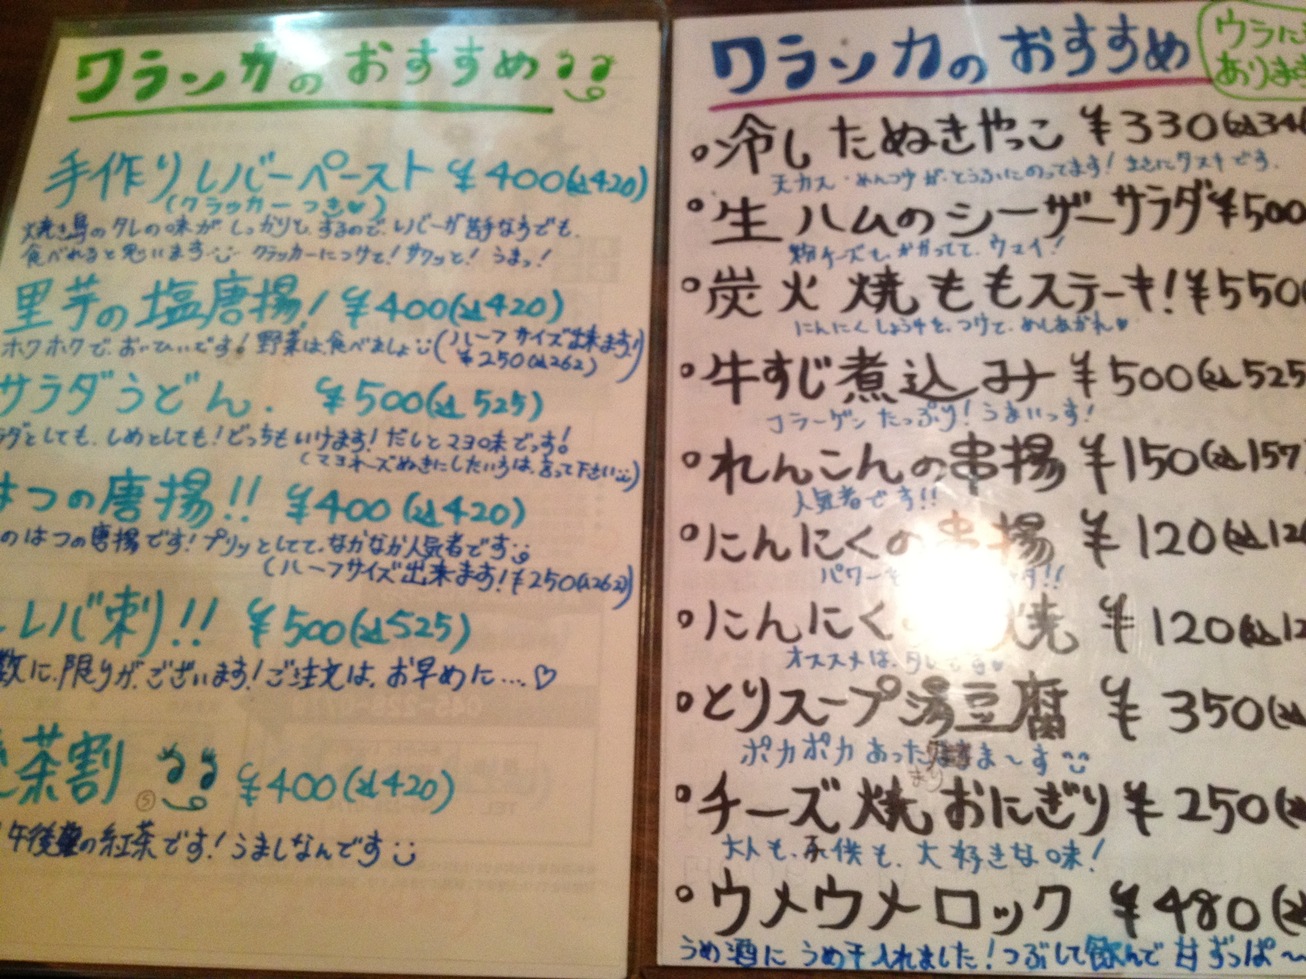 ワランカのおすすめ
手作りレバーペースト ¥400(込420)
(クラッカーつき♡)
焼き鳥のタレの味がしっかりとするので、レバーが苦手な方でも、
食べれると思います クラッカーにつけて!サクッと!うまっ!
里芋の塩唐揚! ¥400(込420)
ホクホクで、おいひいです!野菜は、食べましょ(ハーフサイズ出来ます!
¥250(込262))
サラダうどん. ¥500(込525)
ダとしても、しめとしても!どっちもいけます!だしと230味でっす!
(マヨネーズぬきにしたい方は、言って下さい)
はつの唐揚!! ¥400(込420)
のはつの唐揚です!プリッとしてて、なかなか人気者です
(ハーフサイズ出来ます!¥250(込262))
レバ刺!! ¥500(込525)
数に、限りが、ございます!ご注文は、お早めに…♡
茶割 ¥400(込420)
午後の紅茶です!うましなんです
ワランカのおすすめ
ウラに
あります
冷したぬきやっこ ¥330(込346
天カス・めんつゆが、とうふにのってます!まさにタヌキです.
生ハムのシーザーサラダ¥500
粉チーズも、かかってて、ウマイ!
炭火焼ももステーキ!¥550
にんにくしょうゆを、つけて、めしあがれ♡
牛すじ煮込み ¥500(込525
コラーゲンたっぷり!うまいっす!
れんこんの串揚 ¥150(込157
人気者です!!
にんにくの串揚 ¥120(込12
パワーを す!!
にんにく 焼 ¥120(込12
オススメは、タレです♡
とりスープ湯豆腐 ¥350(込
ポカポカあったまりま〜す
チーズ焼おにぎり ¥250(込
大人も、子供も、大好きな味!
ウメウメロック ¥480(込
うめ酒にうめ干入れました!つぶして飲んで甘ずっぱ〜